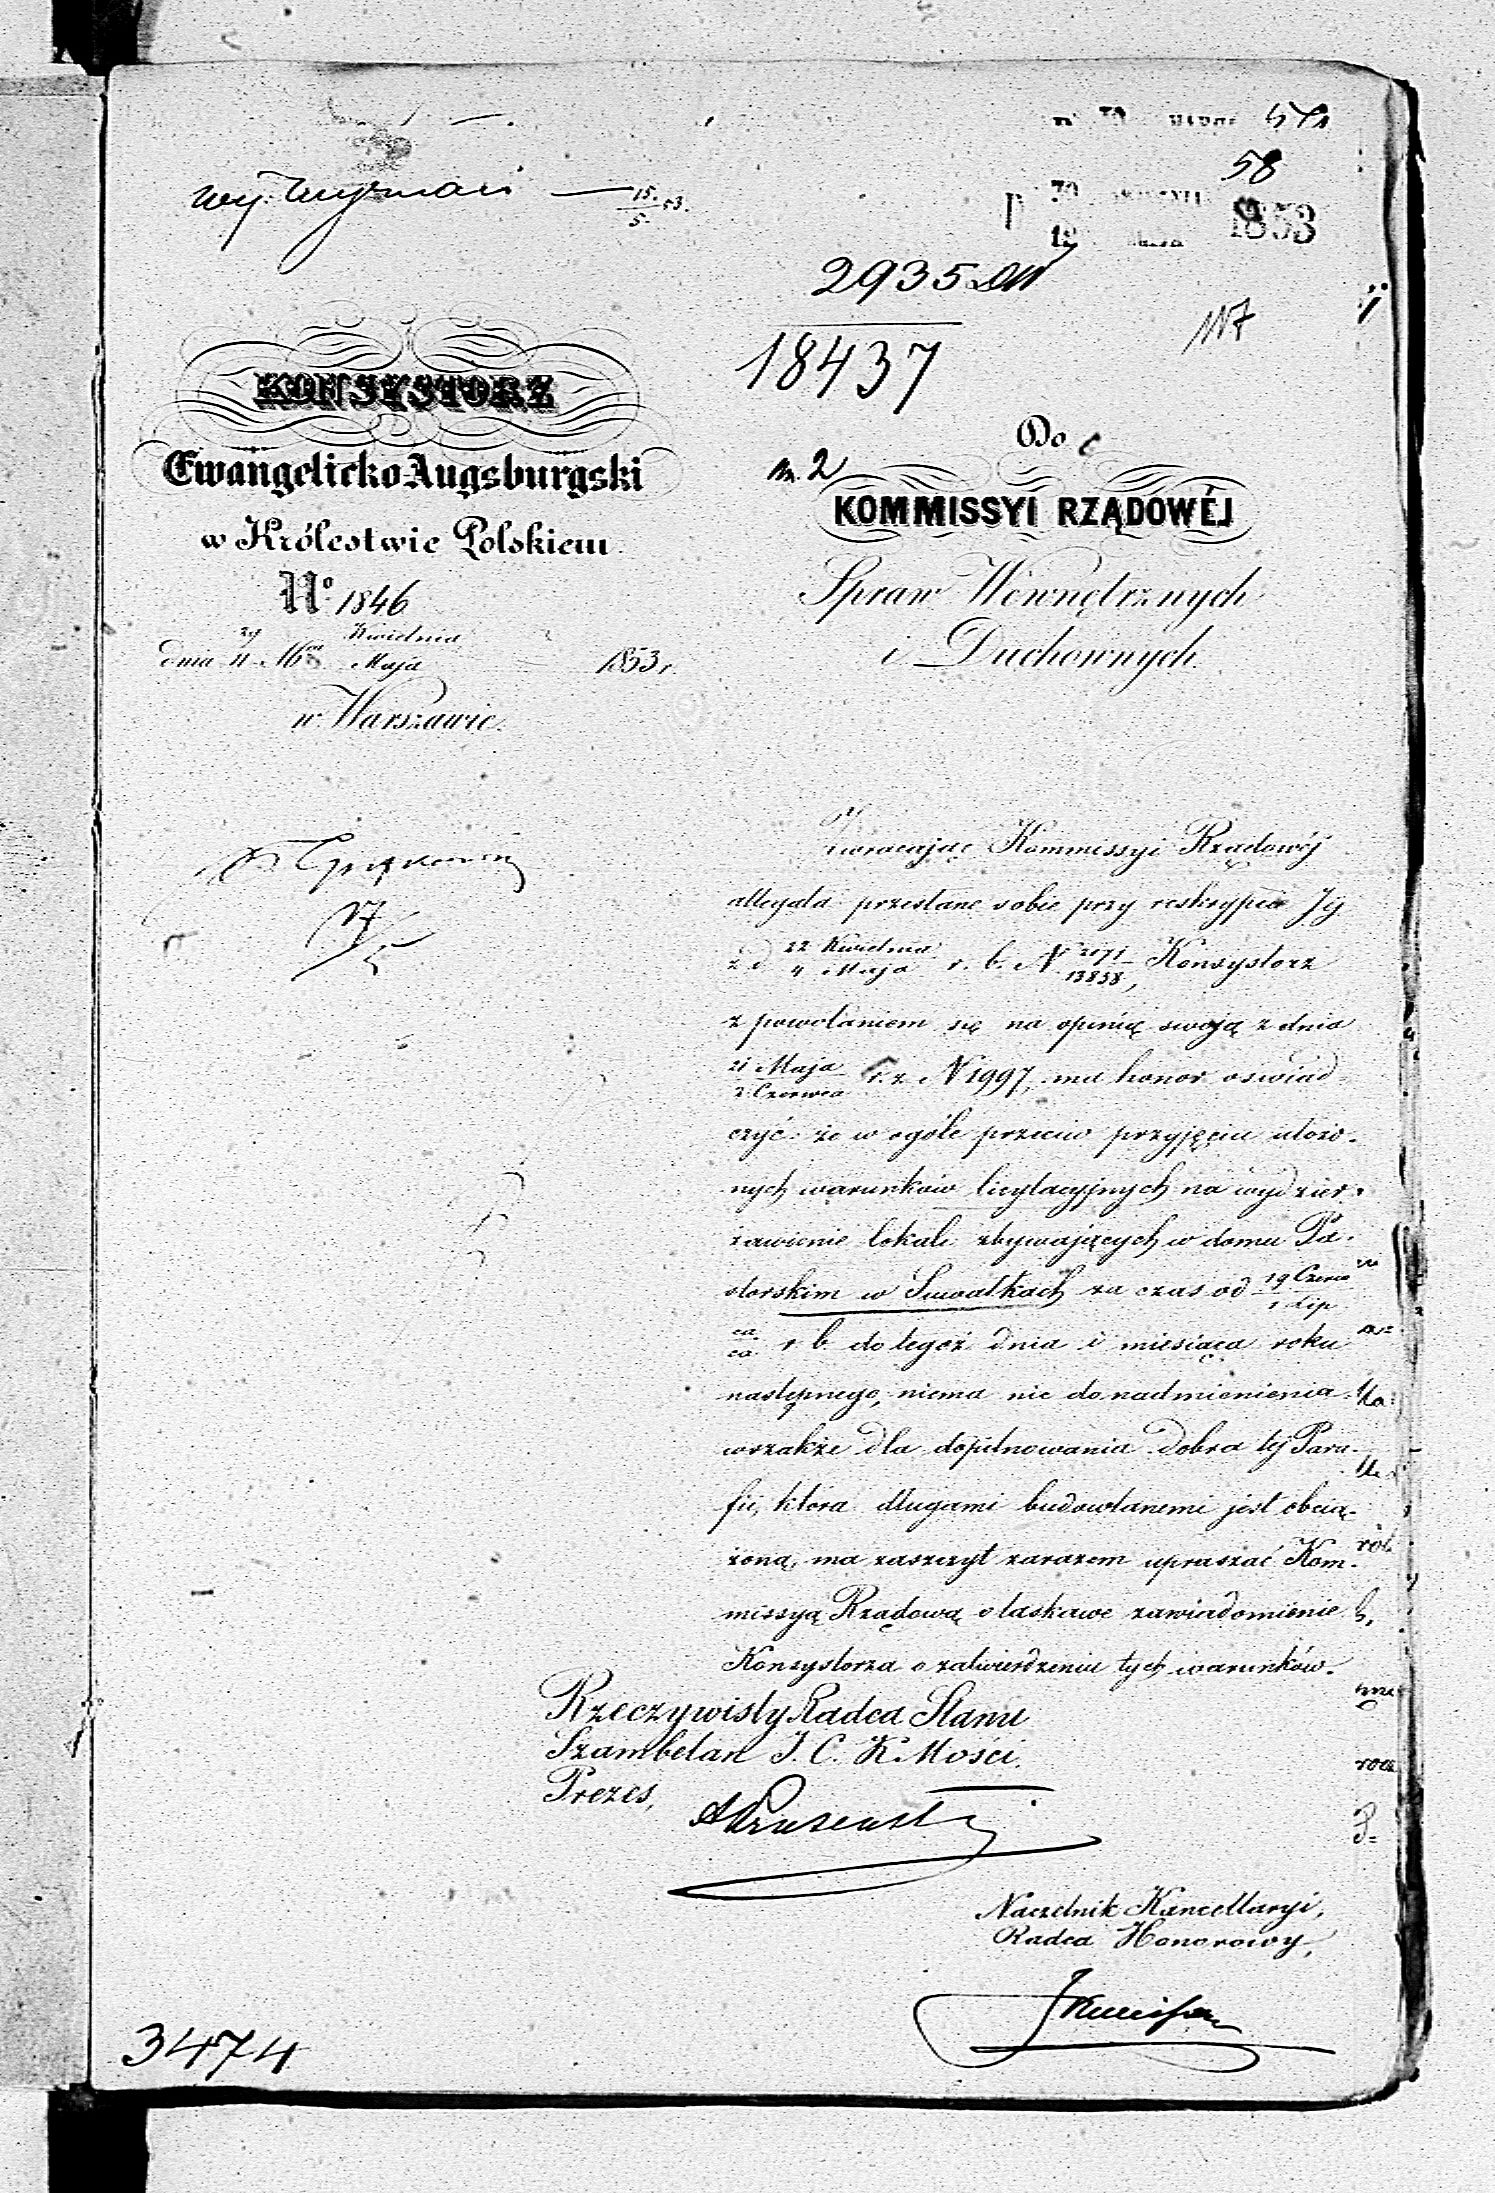 58
1853
15/5 53.
2935
18437
KONSYSTORZ
Ewangelicko Augsburgski
w Królestwie Polskiem
Nº 1846
dnia 29/11 Kwietnia/Maja 1853 r.
w Warszawie.
Do
KOMMISSYI RZĄDOWÉJ
Spraw Wewnętrznych
i Duchownych.
17/5
Zwracając Kommissyi Rządowéj
allegata przesłane sobie przy reskrypcie Jéj
z d 22 Kwietnia/4 Maja r. b. N 2171/13858, Konsystorz
z powołaniem się na opinię swoją z dnia
21 Maja/2 Czerwca r. z. N 1997, ma honor oświad-
czyć że w ogóle przeciw przyjęciu ułożo-
nych warunków licytacyjnych na wydzier-
żawienie lokali zbywających w domu Pa-
storskim w Suwałkach za czas od 19 Czerw/1 Lip
ca/ca r b. do tegoż dnia i miesiąca roku
następnego, niema nic do nadmienienia
wszakże dla dopilnowania dobra téj Para-
fii, która długami budowlanemi jest obcią-
żoną, ma zaszczyt zarazem upraszać Kom-
missyą Rządową o łaskawe zawiadomienie
Konsystorza o zatwierdzeniu tych warunków.
Rzeczywisty Radca Stanu
Szambelan J. C. K Mości.
Prezes,
Naczelnik Kancellaryi,
Radca Honorowy,
3474